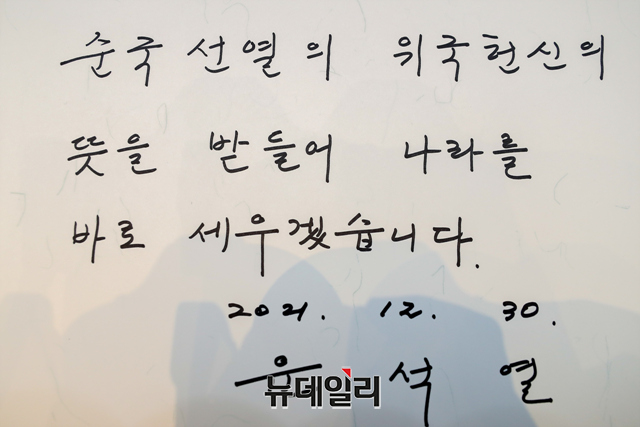 순국선열의 위국헌신의
뜻을 받들어 나라를
바로 세우겠습니다.
2021. 12. 30.
윤석열
뉴데일리